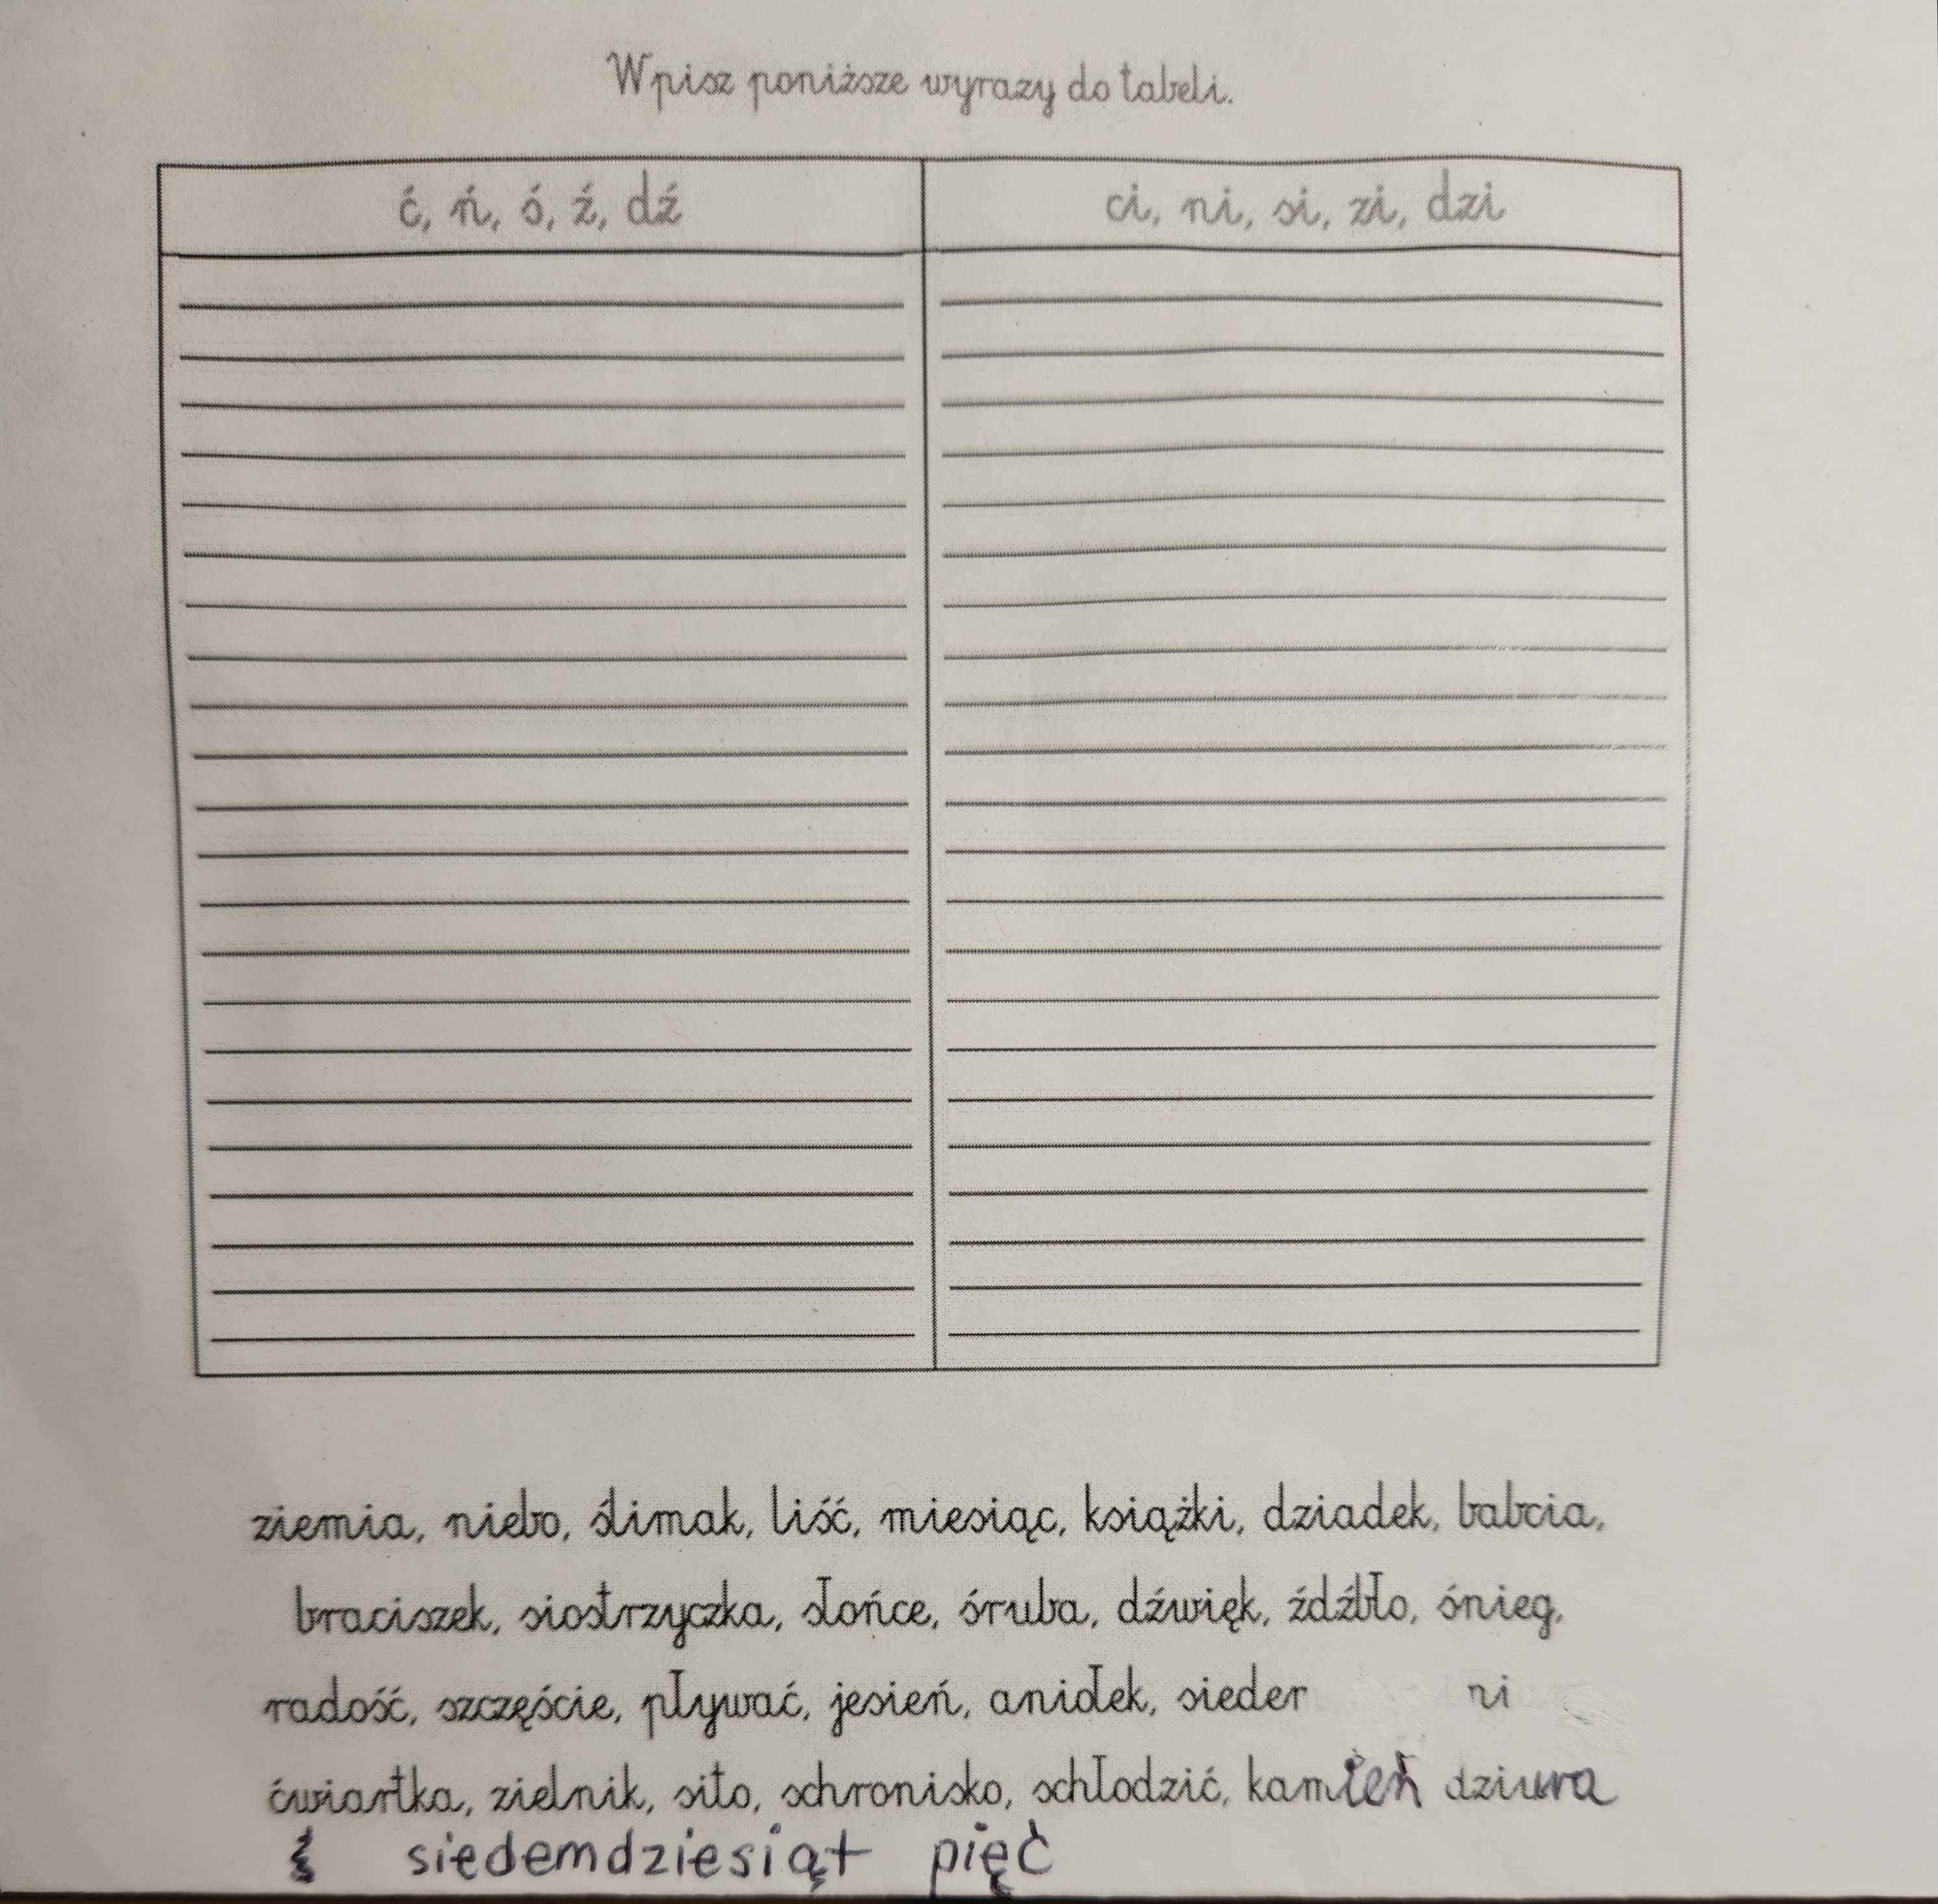 Wpisz poniższe wyrazy do tabeli.
ć, ń, ś, ź, dź
ci, ni, si, zi, dzi
ziemia, niebo, ślimak, liść, miesiąc, książki, dziadek, babcia,
braciszek, siostrzyczka, słońce, śruba, dźwięk, źdźbło, śnieg,
radość, szczęście, pływać, jesień, aniołek, sieder ni
ćwiartka, zielnik, sito, schronisko, schłodzić, kamień dziura
siedemdziesiąt pięć